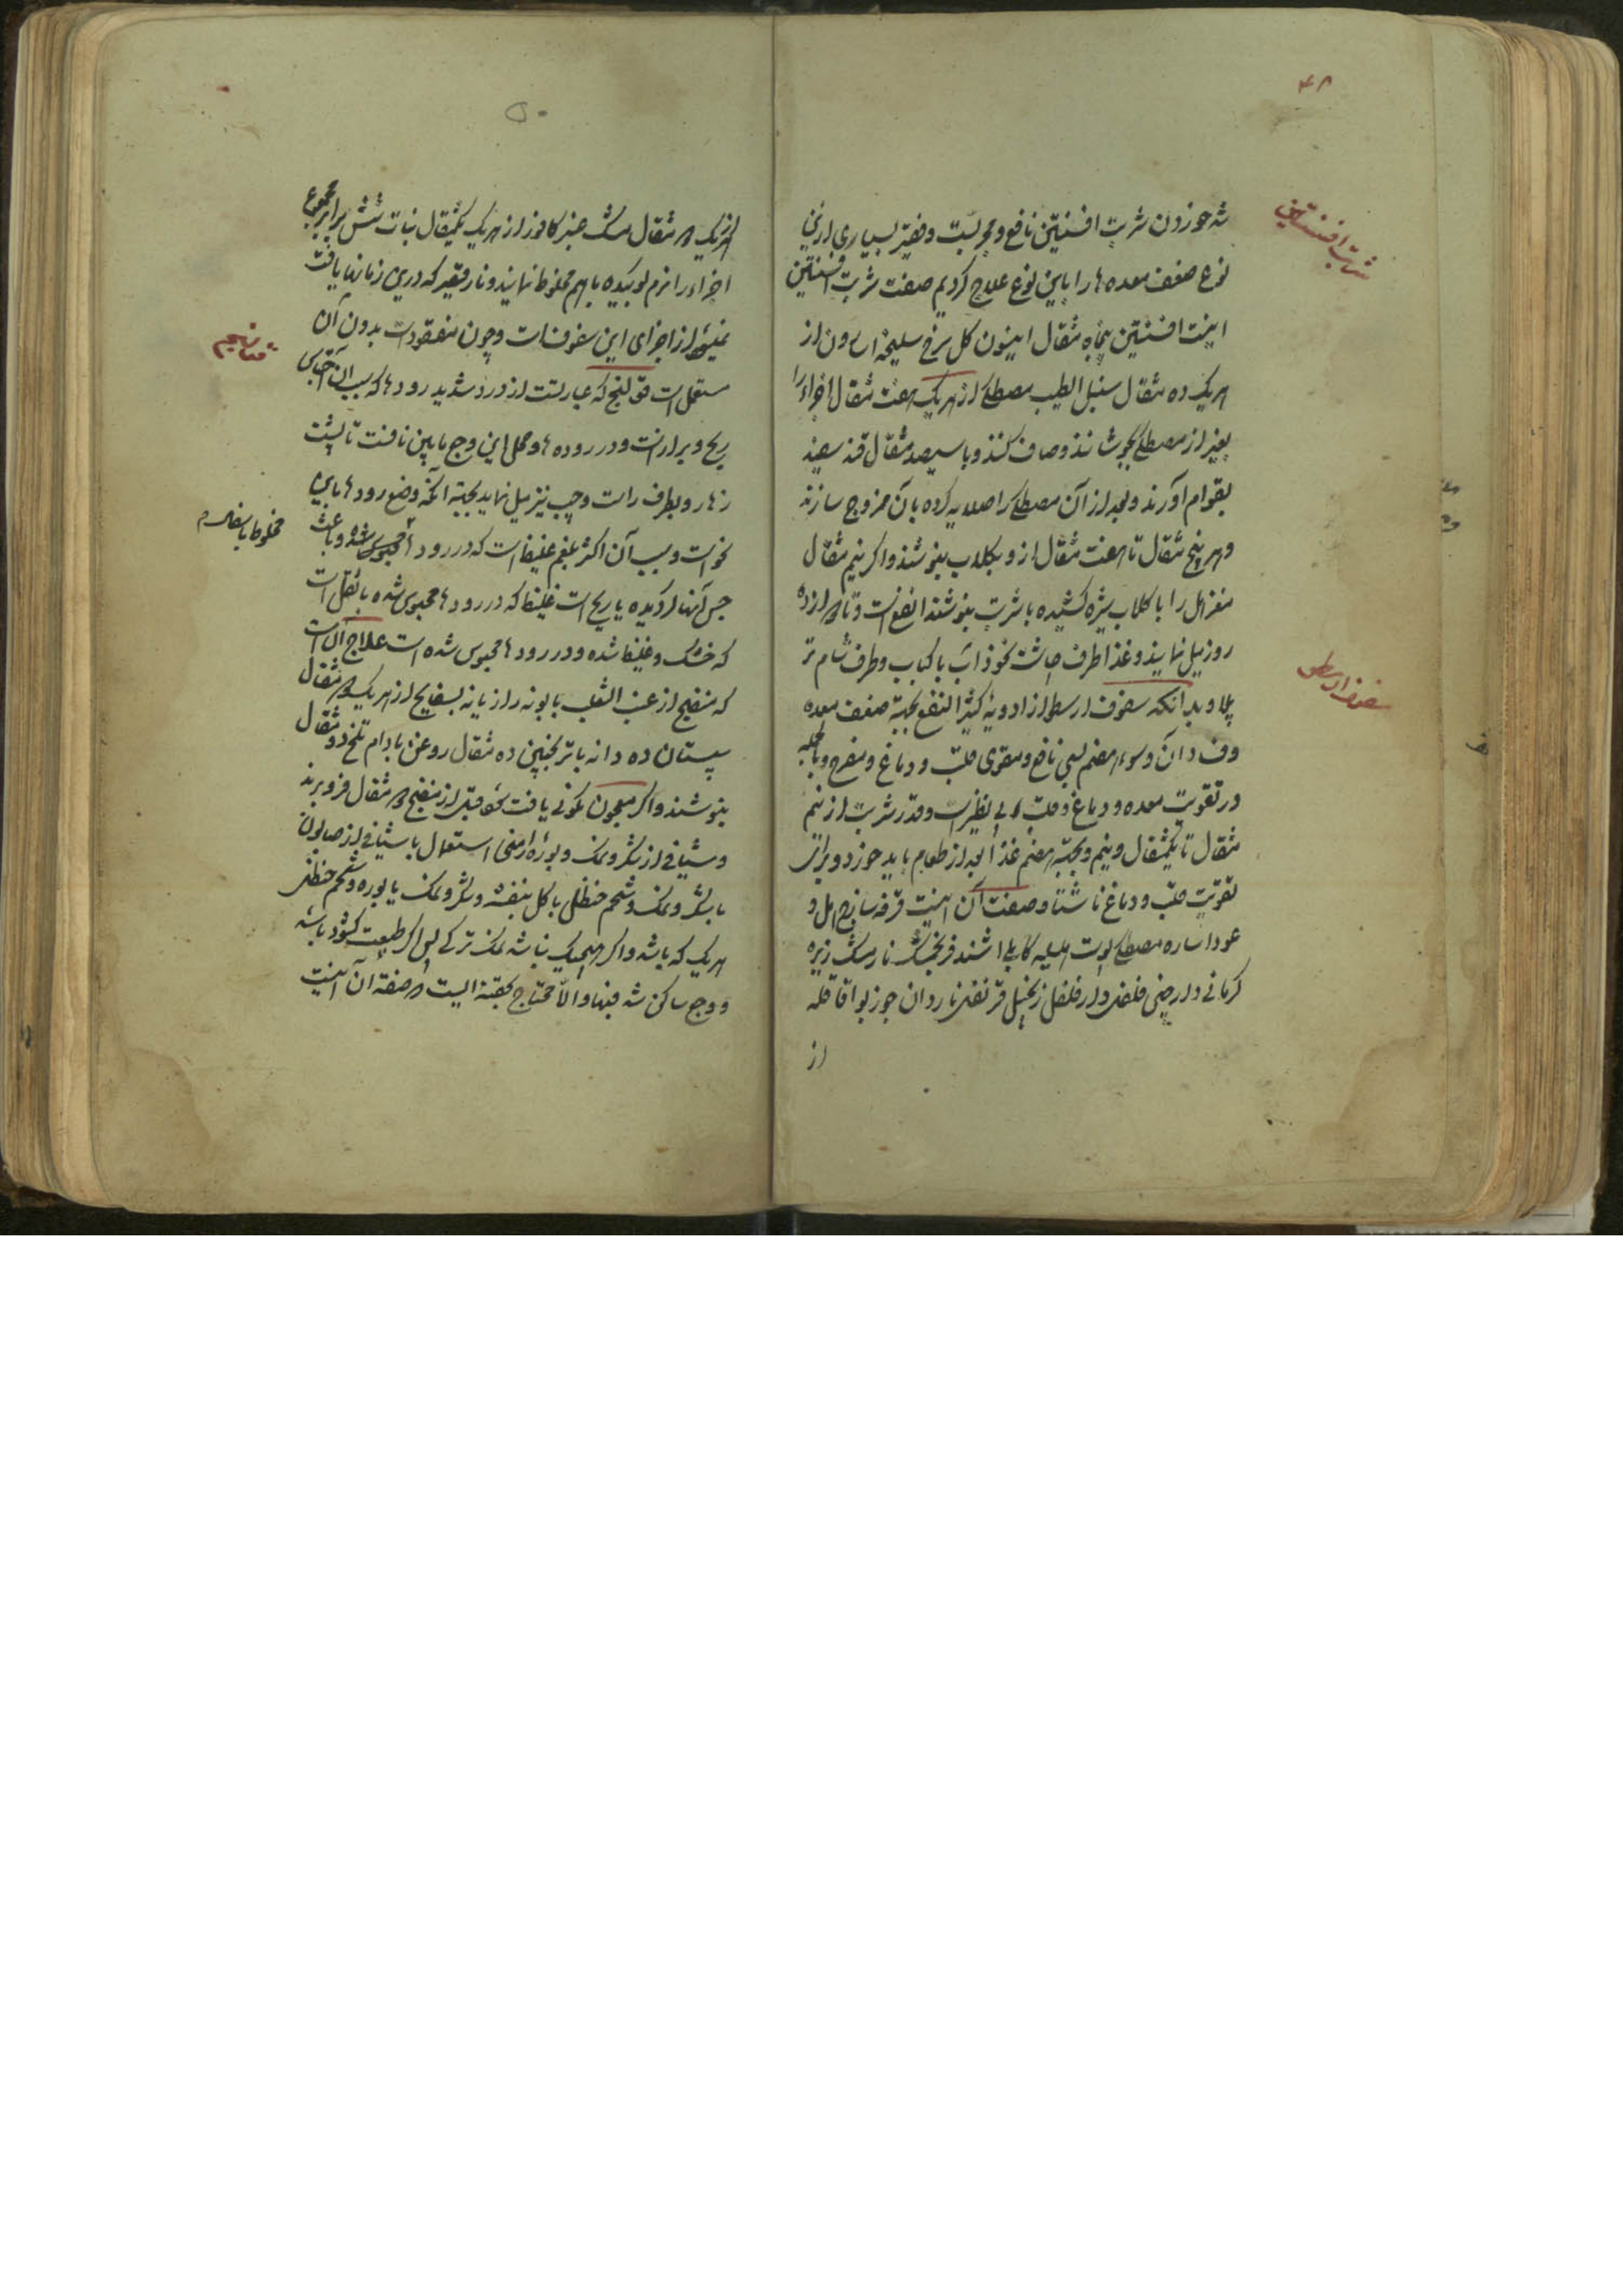 ۴۸
شربت افسنتین
شد خوردن شربت افسنتین نافع و مجربست و فقیر بسیاری ازین
نوع ضعف معده ها را باین نوع علاج کردیم صفت شربت افسنتین
اینست افسنتین پنجاه مثقال انیسون کل سرخ سلیخه اسارون از
هریک ده مثقال سنبل الطیب مصطکی از هریک هفت مثقال اجزاء را
بغیر از مصطکی بجوشانند و صاف کنند و با سیصد مثقال قند سفید
بقوام آورند و بعد از آن مصطکی را صلایه کرده بآن ممزوج سازند
و هر پنج مثقال تا هفت مثقال ازو بکلاب بنوشند و اکر نیم مثقال
مغز هل را با کلاب شیره کشیده با شربت بنوشند انفع است و تا ده
روز میل نمایند و غذا طرف چاشت نخوداب با کباب و طرف شام تر
سفوف ارسطو
پلاو بدانکه سفوف ارسطو از ادویهٔ کثیر النفع بجهة ضعف معده
و فساد آن و سوء هضم بسی نافع و مقوی قلب و دماغ و مفرح و بالجمله
در تقویت معده و دماغ و قلب بی نظیر است و قدر شربت از نیم
مثقال تا یکمثقال و نیم و بجهة هضم غذا بعد از طعام باید خورد و برای
تقویت قلب و دماغ ناشتا و صفت آن اینست قرفه ساذج هل و
عود اساره مصطکی پوست هلیله کابلی اشنه فرنجمشک نارمشک زیره
کرمانی دارچینی فلفل دارفلفل زنجبیل قرنفل ناردان جوزبوا قاقله
از
۵۰
از هریک مثقال مشک عنبر کافور از هریک یکمثقال نبات شش برابر مجموع
اجزاء را نرم کوبیده باهم مخلوط نمایند و نارقیصر که درین زمانها یافت
نمیشود از اجزای این سفوفات و چون مفقودست بدون آن
مستعمل است قولنج که عبارتست از درد شدید رودها که بسبب آن احتباس
ریح و براز است و در روده ها و محل این وجع مابین نافست تا پشت
زهار و بطرف راست و چپ نیز میل نماید بجهة آنکه وضع رودها باین
مخلوط با سفل
نحو است و سبب آن اکثر بلغم غلیظ است که در رودها محبوس شده و باعث
حبس آنها کردیده یا ریح است غلیظ که در رودها محبوس شده یا ثقل است
که خشک و غلیظ شده و در رودها محبوس شده است علاج آن است
که منضج از عنب الثعلب بابونه رازیانه بسفایج از هریک مثقال
سپستان ده دانه با ترنجبین ده مثقال روغن بادام تلخ دو مثقال
بنوشند و اکر معجون کمونی یافت شود قبل از منضج مثقال فرو برند
و شیافی از شکر و نمک و بورهٔ ارمنی استعمال یا شیافی از صابون
یا شکر و نمک و شحم حنظل یا کل بنفشه و شکر و نمک یا بوره و شحم حنظل
هریک که باشد و اکر هیچیک نباشد نمک ترکی پس اکر طبیعت کشوده باشد
و وجع ساکن شد فبها و الّا محتاج بحقنه الیست صفة آن اینست